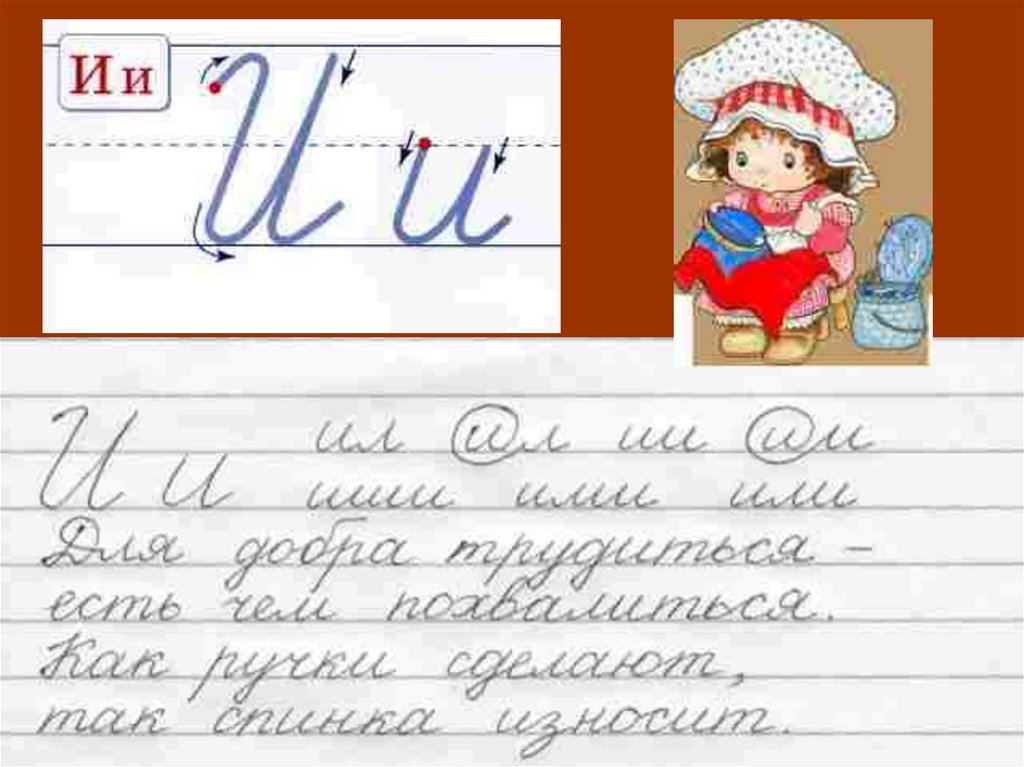 И и
И и
И и ил ил ии ии
ииии ими или
Для добра трудиться –
есть чем похвалиться.
Как ручки сделают,
так спинка износит.